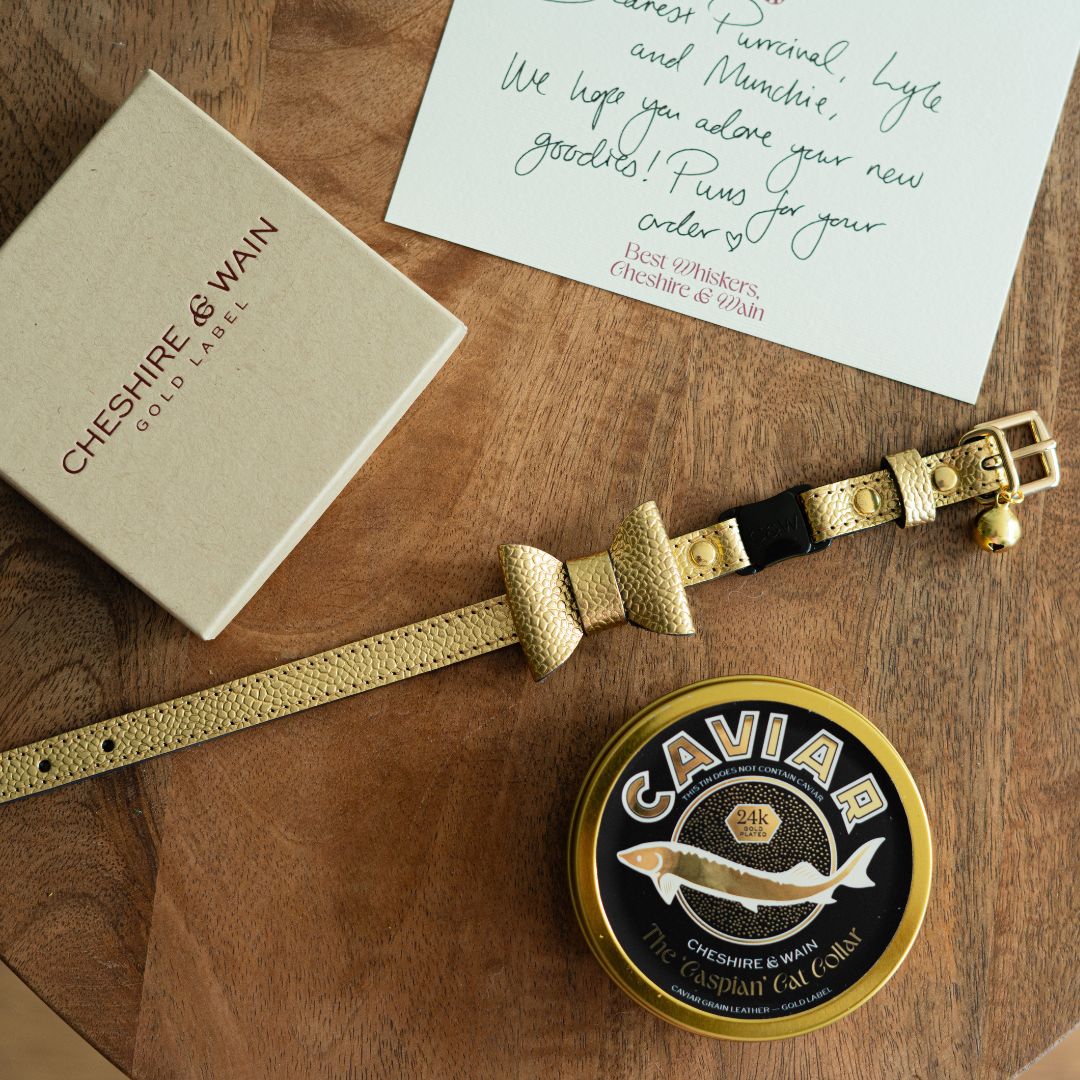 Dearest Purrcinal, Lyle
and Munchie,
We hope you adore your new
goodies! Purrs for your
order ♡
Best Whiskers,
Cheshire & Wain
CHESHIRE & WAIN
GOLD LABEL
C&W
CAVIAR
THIS TIN DOES NOT CONTAIN CAVIAR
24k
GOLD
PLATED
CHESHIRE & WAIN
The 'Caspian' Cat Collar
CAVIAR GRAIN LEATHER — GOLD LABEL